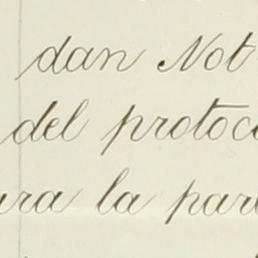 dan Not
del protoco
ura la par